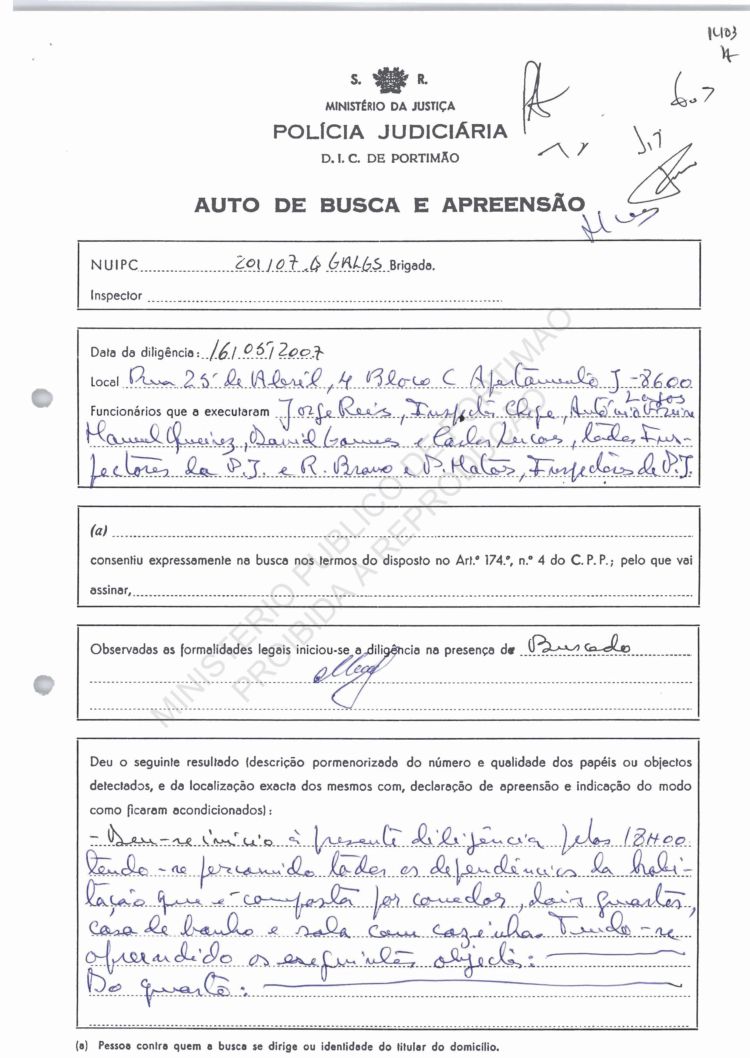 1403
S. R.
MINISTÉRIO DA JUSTIÇA
POLÍCIA JUDICIÁRIA
D. I. C. DE PORTIMÃO
AUTO DE BUSCA E APREENSÃO
NUIPC 201/07.0 GALGS Brigada.
Inspector
Data da diligência: 16/05/2007
Local Rua 25 de Abril, 4 Bloco C Apartamento J - 8600
Lagos
Funcionários que a executaram Jorge Reis, Inspector Chefe, António
Manuel Queiroz, David Gomes e Carlos Lucas, todos Ins-
pectores da P.J. e R. Bravo e P. Matos, Inspectores da P.J.
(a)
consentiu expressamente na busca nos termos do disposto no Art.º 174.º, n.º 4 do C. P. P.; pelo que vai
assinar,
Observadas as formalidades legais iniciou-se a diligência na presença de Buscado
Deu o seguinte resultado (descrição pormenorizada do número e qualidade dos papéis ou objectos
detectados, e da localização exacta dos mesmos com, declaração de apreensão e indicação do modo
como ficaram acondicionados):
- Deu-se início à presente diligência pelas 18H00
tendo-se percorrido todas as dependências da habi-
tação que é composta por corredor, dois quartos,
casa de banho e sala com cozinha. Tendo-se
apreendido os seguintes objectos:
Do quarto:
(a) Pessoa contra quem a busca se dirige ou identidade do titular do domicílio.
MINISTERIO PUBLICO DE PORTIMAO
PROIBIDA A REPRODUÇÃO